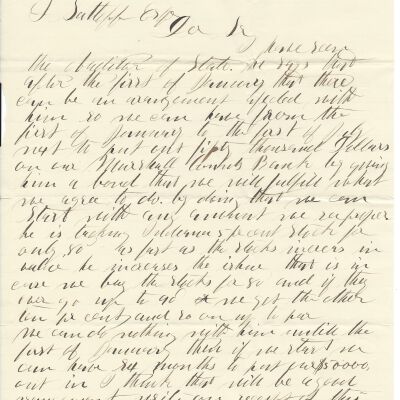 Dr Sir
I have seen
the Auditor of State. he says that
after the first of January that there
can be an arangement affected with
him so we can have from the
first of January to the first of
next to put out fifty thousand Dollars
on our Marshall County Bank by giving
him a bond that we will fulfill what
we agree to do. by doing that we can
start with any amount we
he is taking Indianna 5 per cent stock for
only 80 as fast as the stocks increas in
value he increases the ishue that is in
case we buy the stocks for 80 and if they
ever go up to 90 we get the other
ten per cent and so on up to par
we can do nothing with him untill the
first of January then if we start we
can have six months to put our $50000
out in I think that will be a good